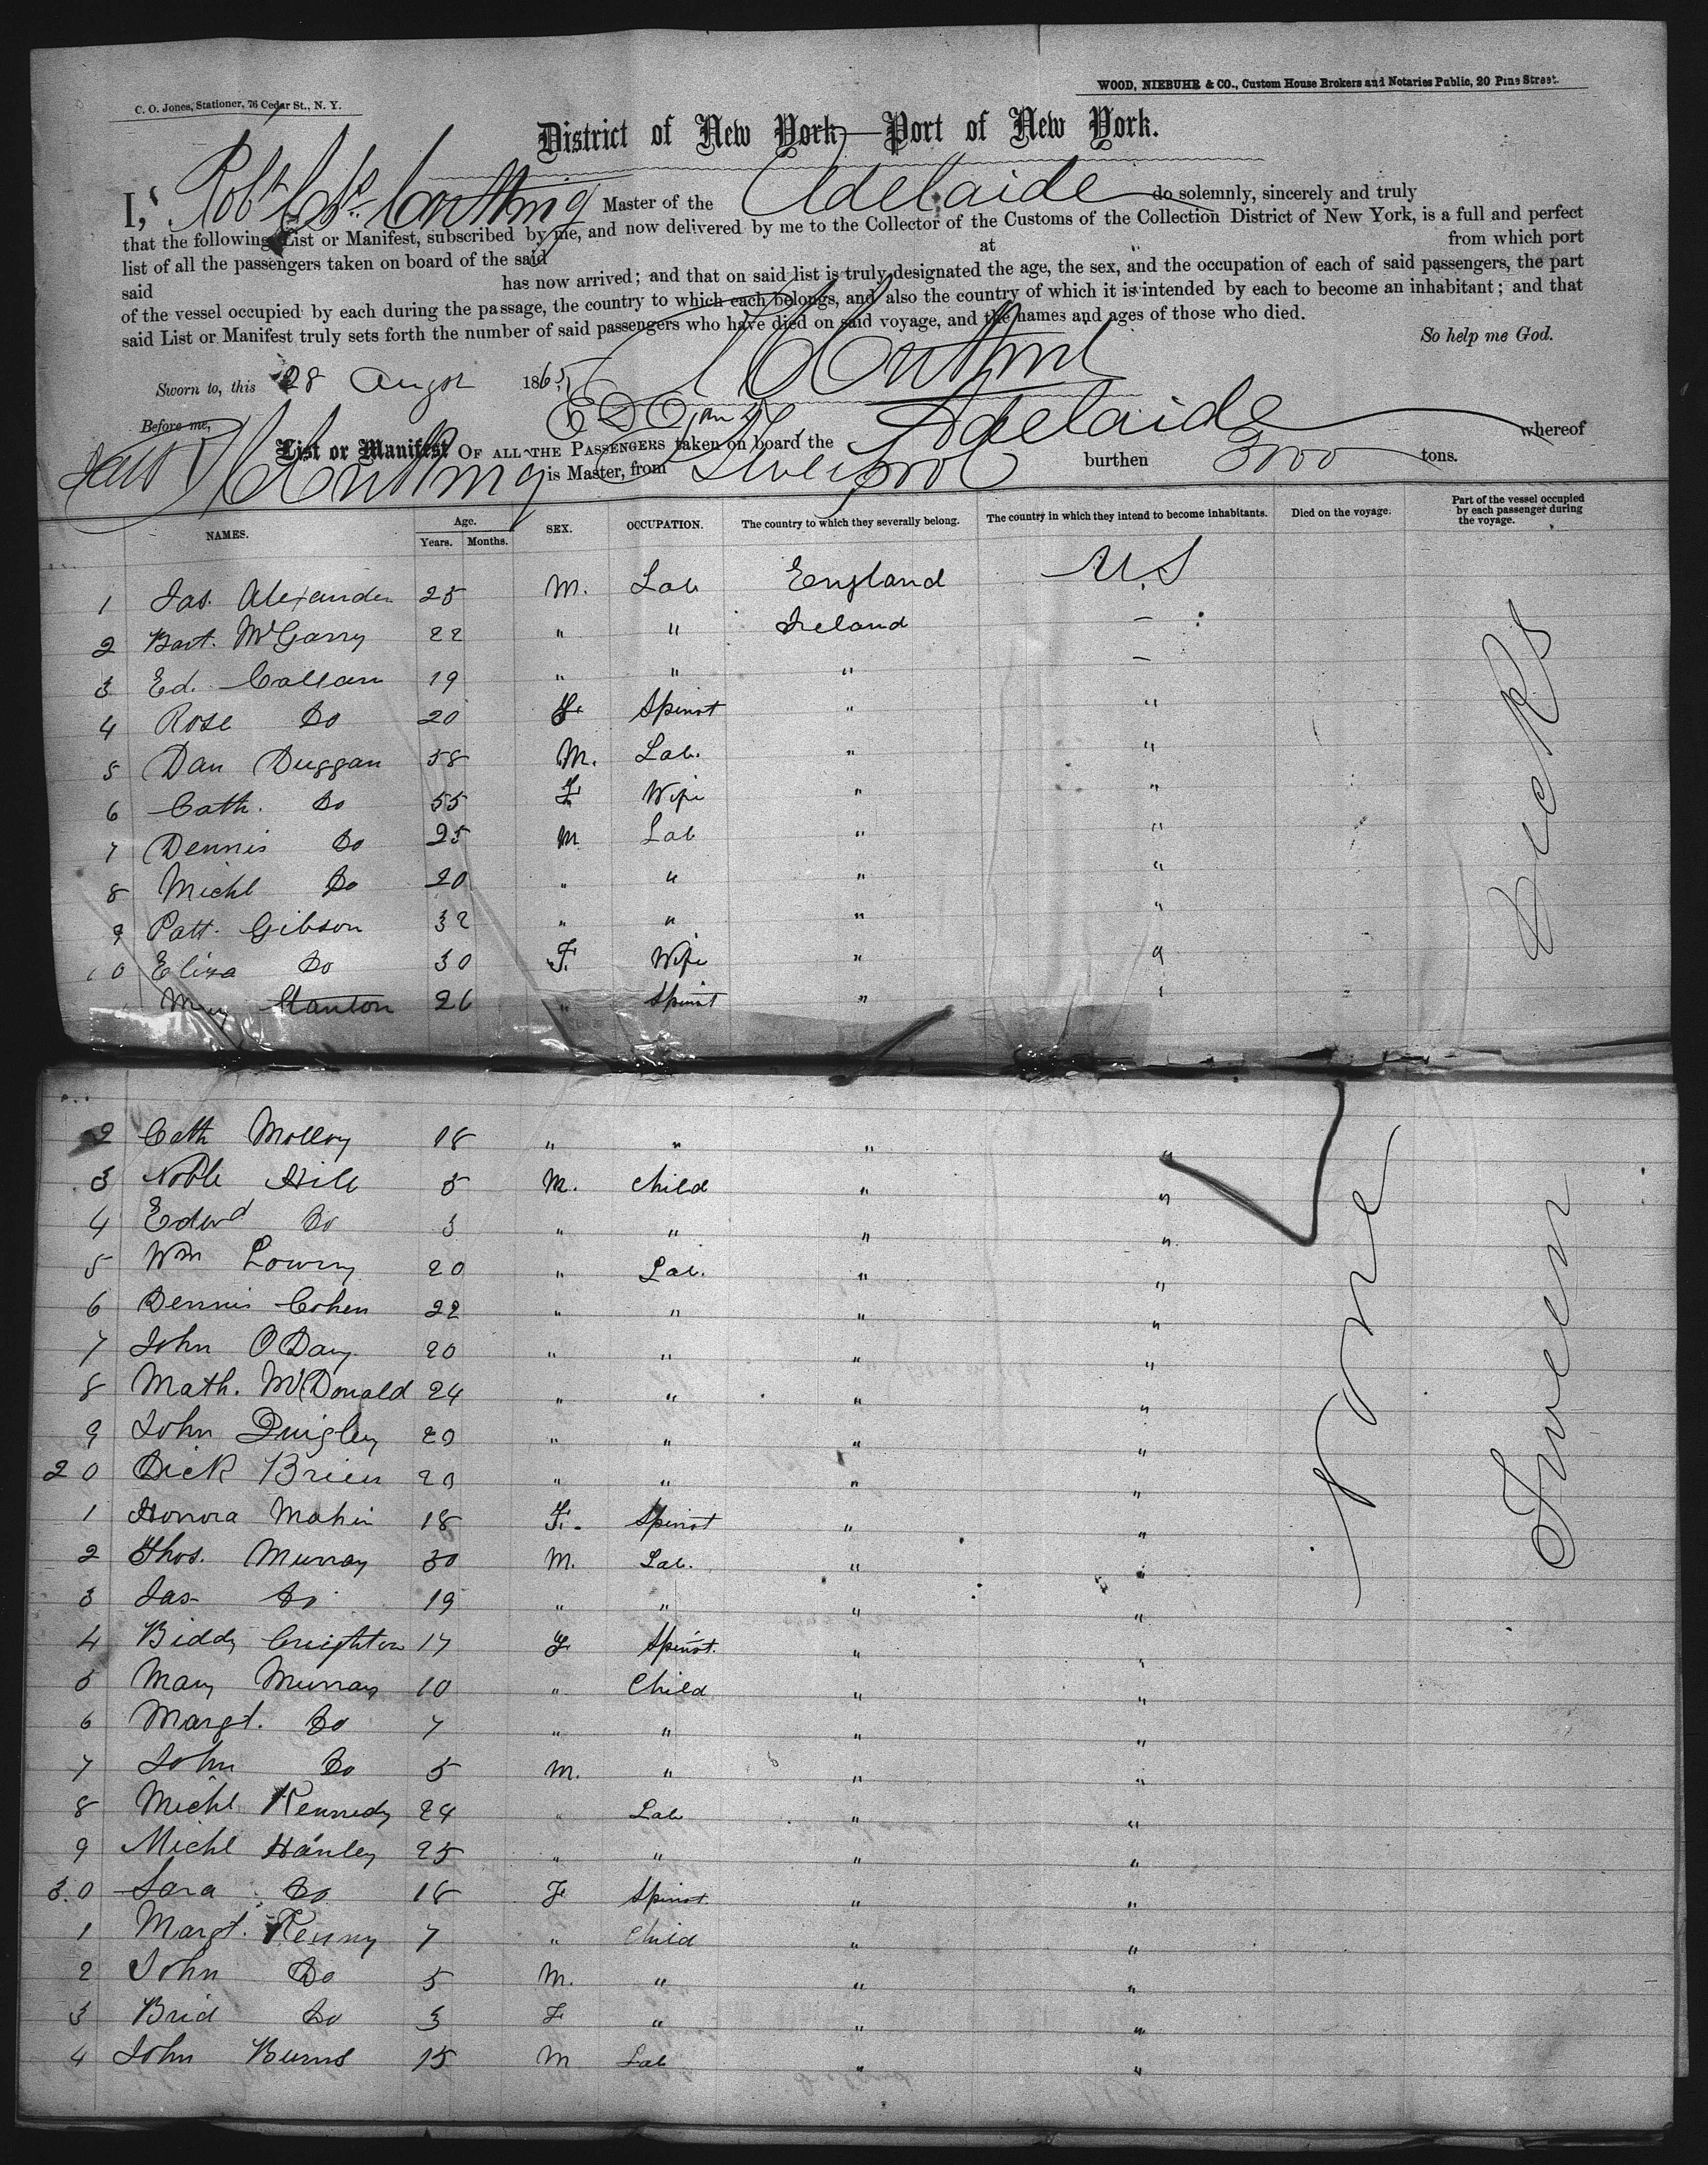 C. O. Jones, Stationer, 76 Cedar St., N. Y.
WOOD, NIEBUHR & CO., Custom House Brokers and Notaries Public, 20 Pine Street.
District of New York—Port of New York.
I, Robt Master of the Adelaide do solemnly, sincerely and truly
that the following List or Manifest, subscribed by me, and now delivered by me to the Collector of the Customs of the Collection District of New York, is a full and perfect
list of all the passengers taken on board of the said at from which port
said has now arrived; and that on said list is truly designated the age, the sex, and the occupation of each of said passengers, the part
of the vessel occupied by each during the passage, the country to which each belongs, and also the country of which it is intended by each to become an inhabitant; and that
said List or Manifest truly sets forth the number of said passengers who have died on said voyage, and the names and ages of those who died.
So help me God.
Sworn to, this 28 Augst 1865
Before me,
List or Manifest OF ALL THE PASSENGERS taken on board the Adelaide whereof
is Master, from Liverpool burthen 3000 tons.
NAMES. Age. Years. Months. SEX. OCCUPATION. The country to which they severally belong. The country in which they intend to become inhabitants. Died on the voyage. Part of the vessel occupied by each passenger during the voyage.
1 Jas. Alexander 25 M. Lab England U.S
2 Bart. McGarry 22 " " Ireland –
3 Ed. Callan 19 " " " –
4 Rose Do 20 F. Spinst " "
5 Dan Duggan 58 M. Lab. " "
6 Cath. Do 55 F Wife " "
7 Dennis Do 25 M Lab " "
8 Michl Do 20 " " " "
9 Patt. Gibson 32 " " " "
10 Eliza Do 30 F. Wife " "
Mary Stanton 26 " Spinst " "
2 Cath Molloy 18 " " " "
3 Noble Hill 5 M. Child " "
4 Edwd Do 3 " " " "
5 Wm Lowry 20 " Lab. " "
6 Dennis Cohen 22 " " " "
7 John O Day 20 " " " "
8 Math. McDonald 24 " " " "
9 John Quigley 20 " " " "
20 Dick Brien 20 " " " "
1 Honora Mahin 18 F. Spinst " "
2 Thos. Murray 30 M. Lab. " "
3 Jas Do 19 " " " "
4 Biddy Creighton 17 F Spinst. " "
5 Mary Murray 10 " Child " "
6 Margt. Do 7 " " " "
7 John Do 5 M. " " "
8 Michl Kennedy 24 " Lab " "
9 Michl Hanley 25 " " " "
30 Sara Do 18 F Spinst " "
1 Margt. Kenny 7 " Child " "
2 John Do 5 M. " " "
3 Brid Do 3 F " " "
4 John Burns 15 M Lab " "
None
Tween Decks